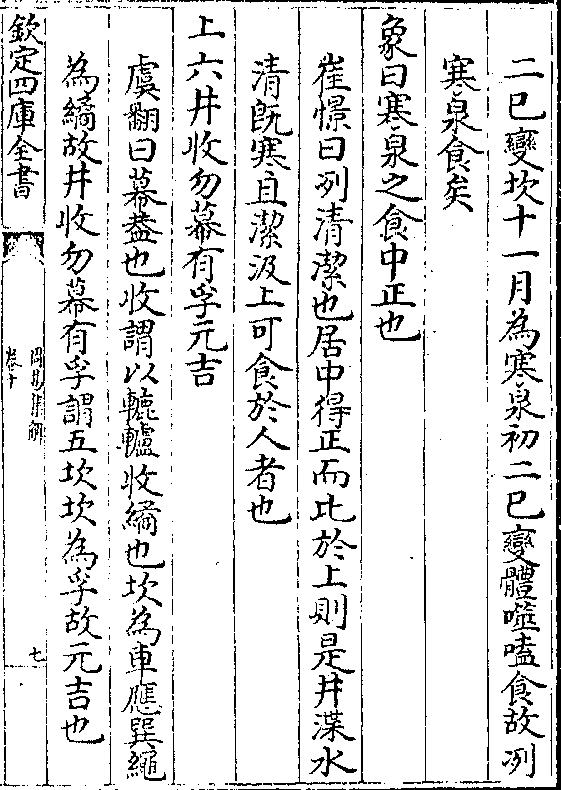 二已變坎十一月為寒泉初二已變體噬嗑食故冽
寒泉食矣
象曰寒泉之食中正也
崔憬曰冽清潔也居中得正而比於上則是井渫水
清既寒且潔汲上可食於人者也
上六井收勿幕有孚元吉
虞翻曰幕葢也收謂以轆轤收繘也坎為車應巽繩
為繘故井收勿幕有孚謂五坎坎為孚故元吉也
欽定四庫全書
周易集解
卷十
七